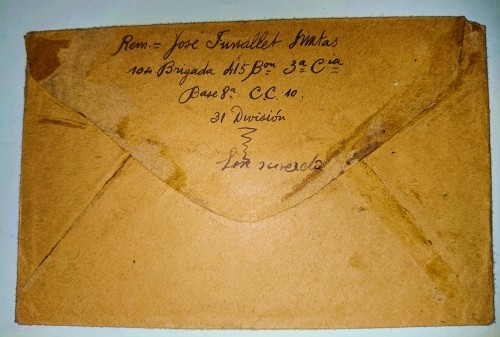 Rem.= José Funallet Matas
104 Brigada 415 Bon 3ª Cia
Base 8ª C.C. 10.
31 División